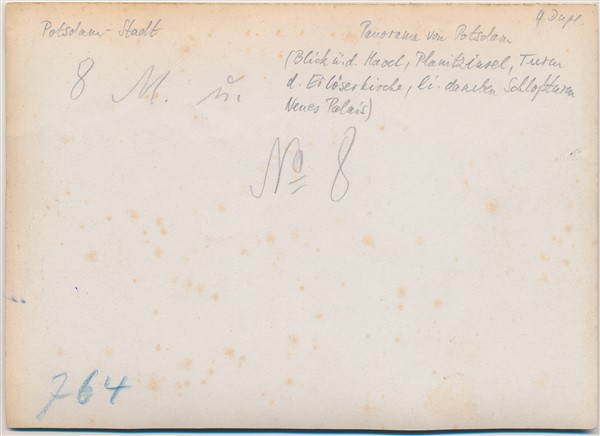 Potsdam-Stadt
Panorama von Potsdam
(Blick ü.d. Havel, Planitzinsel, Turm
d. Erlöserkirche, li. daneben Schloßturm
Neues Palais)
Dupl.
8 M. u.
No 8
764